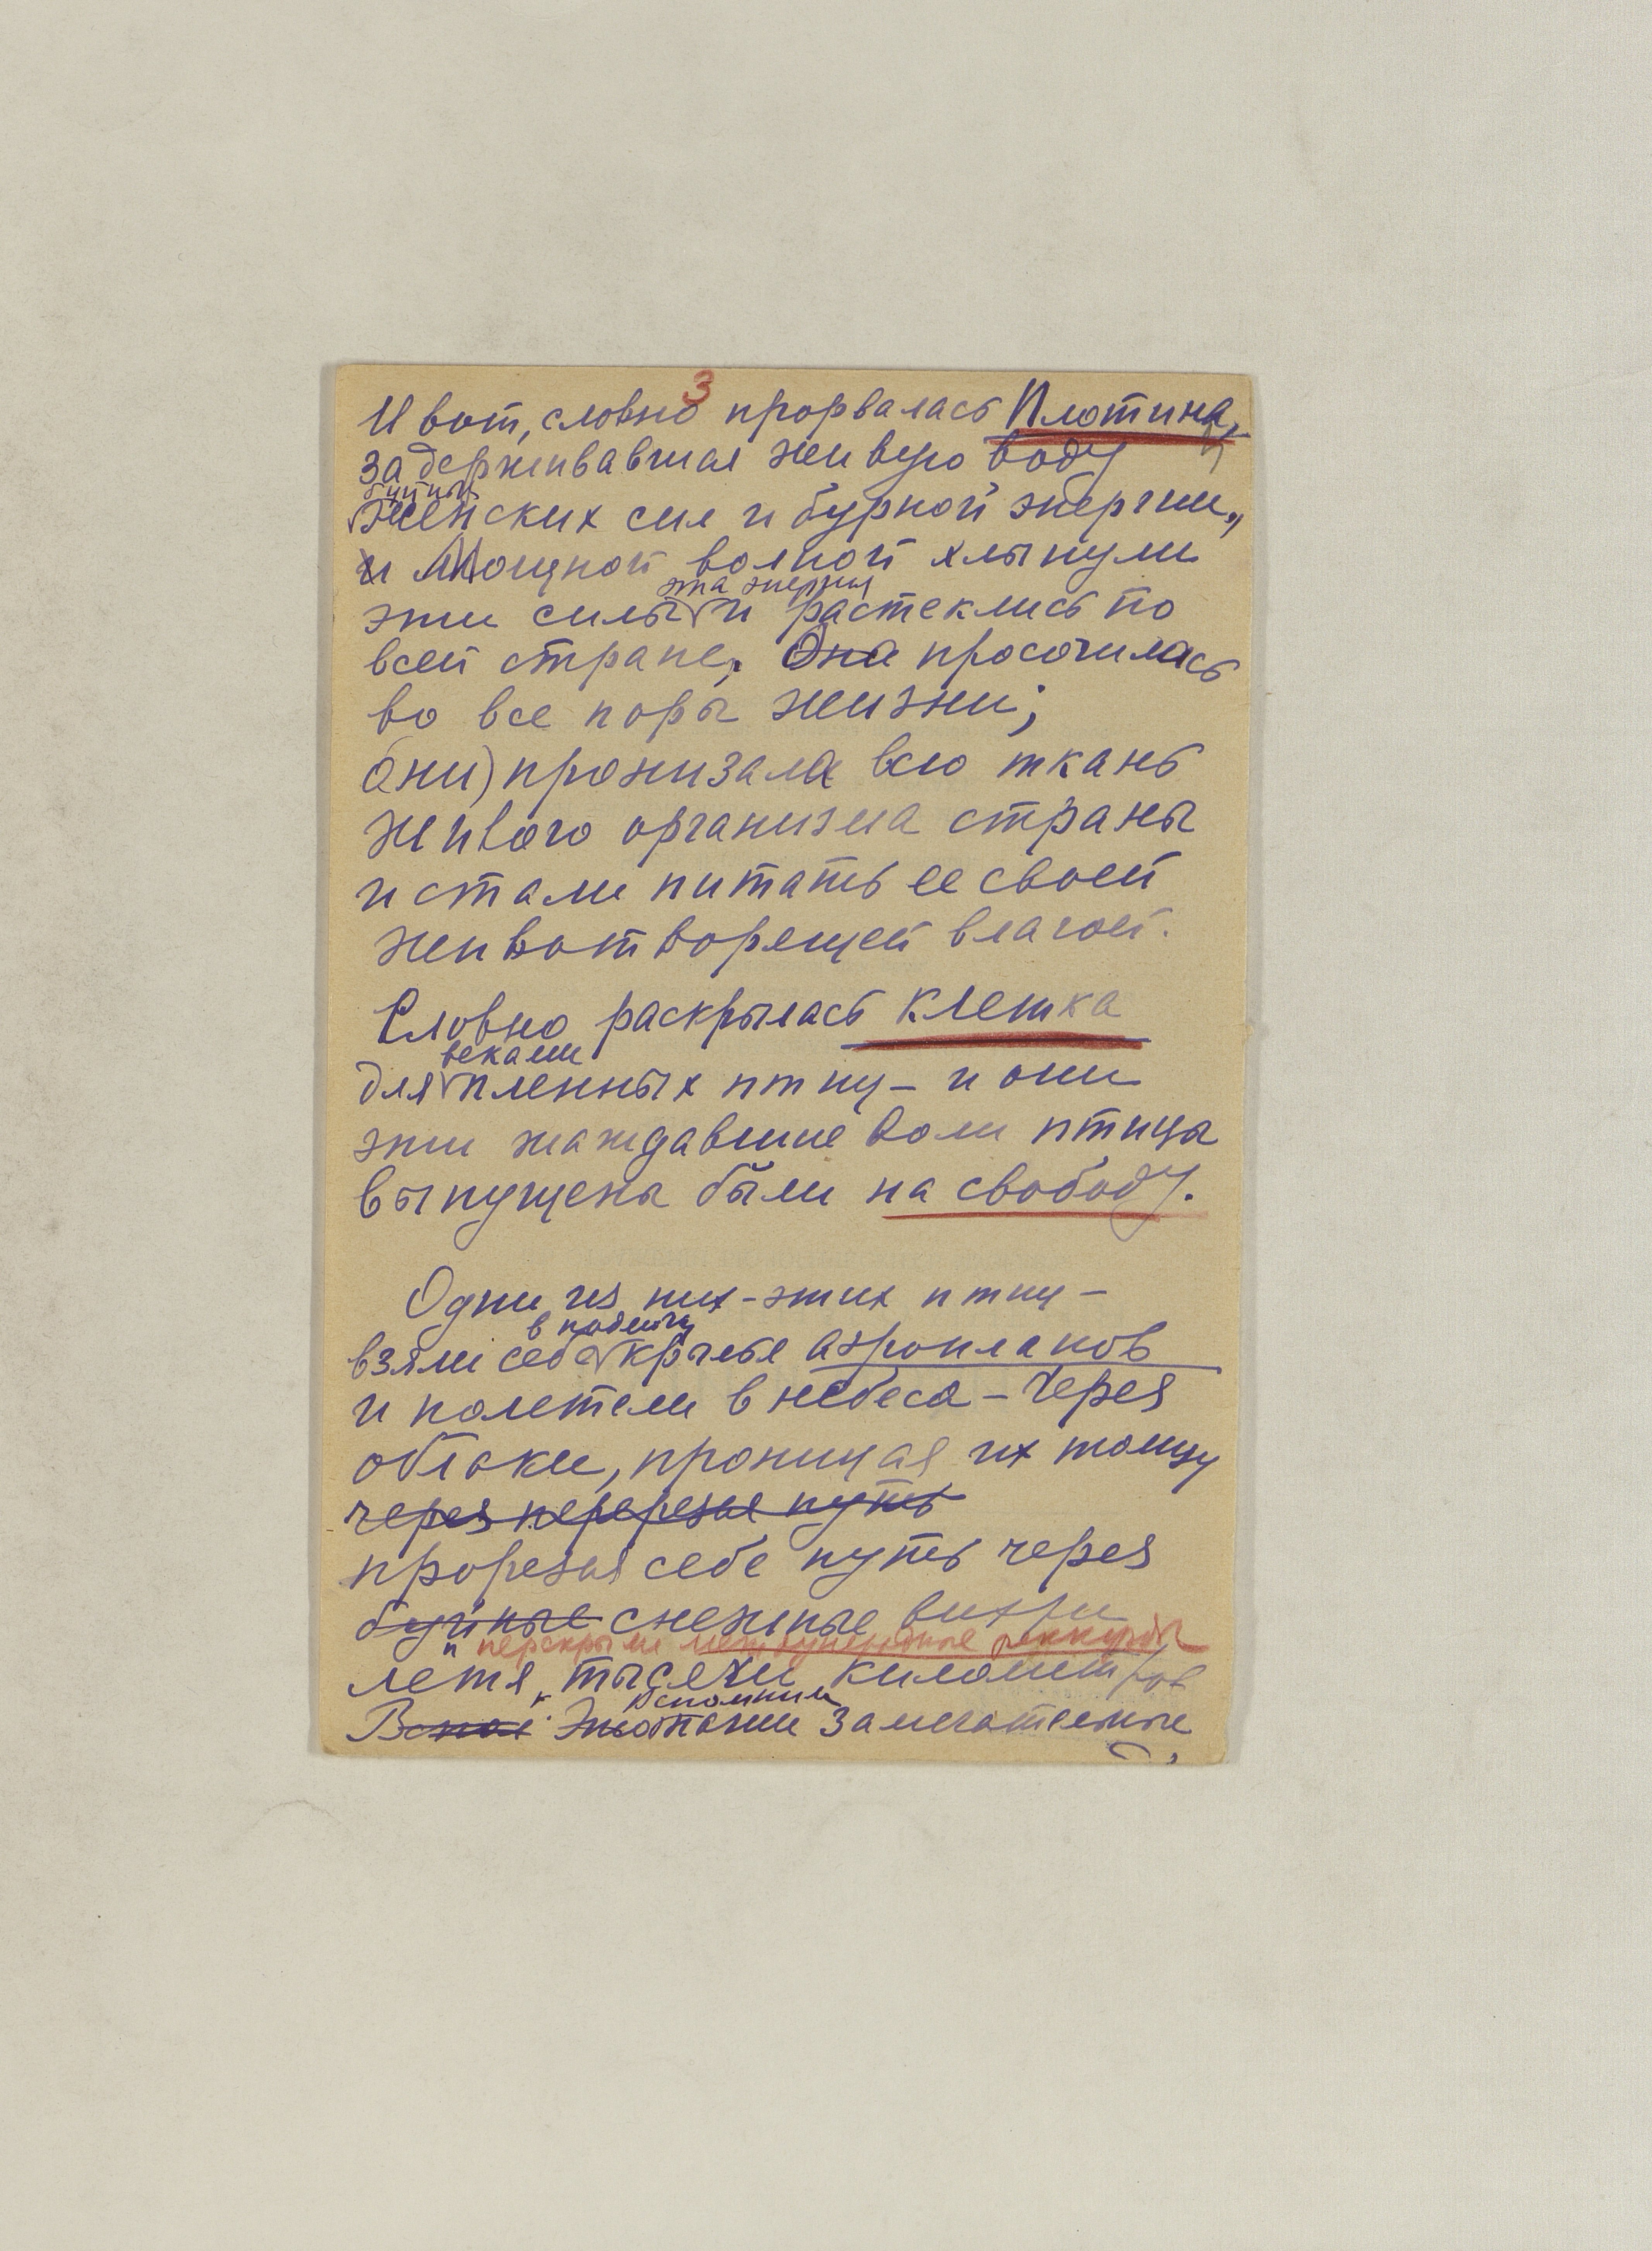 3
И вот, словно прорвалась Плотина,
задерживавшая живую воду
буйных
женских сил и бурной энергии,
и Мощной волной хлынули
эта энергия
эти силы и растеклись по
всей стране. Она просочилась
во все поры жизни;
они) пронизала всю ткань
живого организма страны
и стали питать ее своей
животворящей влагой.
Словно раскрылась клетка
веками
для пленных птиц – и они
эти жаждавшие воли птицы
выпущены были на свободу.
Одни из них – этих птиц –
в подмогу
взяли себе крылья аэропланов
и полетели в небеса – через
облаки, проницая их толщу
через перерезая путь
прорезая себе путь через
буйные снежные вихри
и перекрыли международные реккорды
летя тысячи километров
Вспомним
замечательные